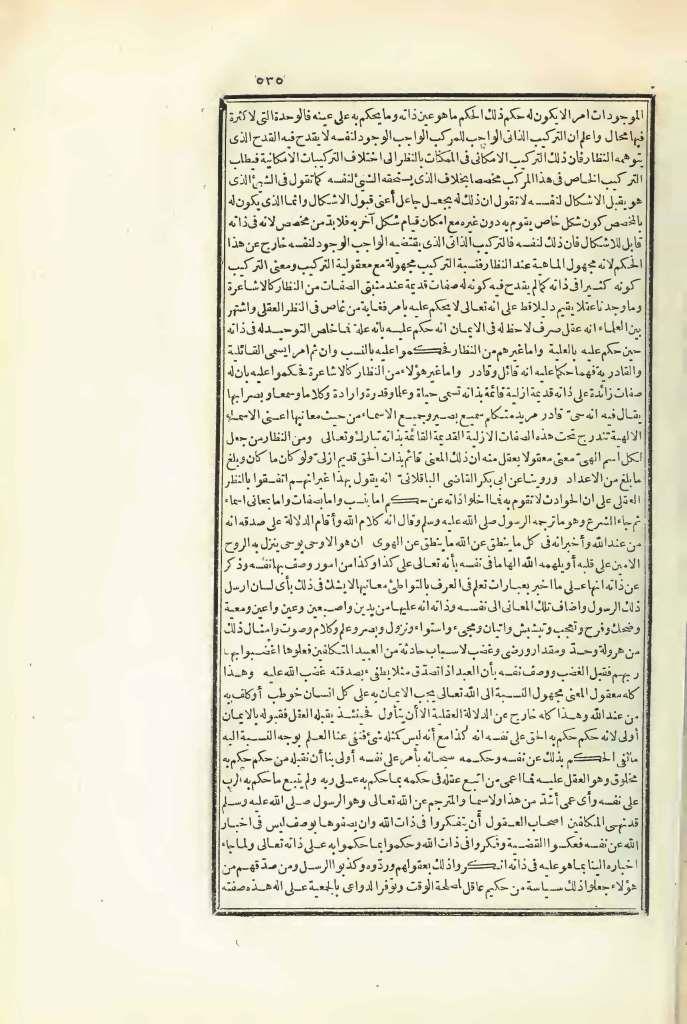 ٥٣٥
الموجودات امر الا يكون له حكم ذلك الحكم ما هو عين ذاته وما يحكم به على عينه فالوحدة التى لا كثرة
فيها محال واعلم ان التركيب الذاتى الواجب للمركب الواجب الوجود لنفسه لا يقدح فيه القدح الذى
يتوهمه النظار فان ذلك التركيب الامكانى فى الممكنات بالنظر الى اختلاف التركيبات الامكانية فيطلب
التركيب الخاص فى هذا المركب مخصصا بخلاف الذى يستحقه الشئ لنفسه كما تقول فى الشئ الذى
هو يقبل الاشكال لنفسه لا تقول ان ذلك له يجعل جاعل أعنى قبول الاشكال وانما الذى يكون له
بالمخصص كون شكل خاص يقوم به دون غيره مع امكان قيام شكل آخر به فلابد من مخصص لانه فى ذاته
قابل للاشكال فان ذلك لنفسه فالتركيب الذاتى الذى يقتضيه الواجب الوجود لنفسه خارج عن هذا
الحكم لانه مجهول الماهية عند النظار فنسبة التركيب مجهولة مع معقولية التركيب ومعنى التركيب
كونه كثيرا فى ذاته كما لم يقدح فيه كونه له صفات قديمة عند مثبتى الصفات من النظار كالاشاعرة
وما وجدنا عقلا يقيم دليلا قط على انه تعالى لا يحكم عليه بامر فغاية من غاص فى النظر العقلى واشتهر
بين العلماء انه عقل صرف لا حظ له فى الايمان انه حكم عليه بانه علة فما خلص التوحيد له فى ذاته
حين حكم عليه بالعلية واما غيرهم من النظار فحكموا عليه بالنسب وان ثم امرا يسمى القائلية
والقادرية بهما حكما عليه انه قائل وقادر واما غير هؤلاء من النظار كالاشاعرة فحكموا عليه بان له
صفات زائدة على ذاته قديمة ازلية قائمة بذاته تسمى حياة وعلما وقدرة وارادة وكلاما وسمعا وبصرا بها
يقال فيه انه حى قادر مريد متكلم سميع بصير وجميع الاسماء من حيث معانيها اعنى الاسماء
الالهية تندرج تحت هذه الصفات الازلية القديمة القائمة بذاته تبارك وتعالى ومن النظار من جعل
لكل اسم الهى معنى معقولا يعقل منه ان ذلك المعنى قائم بذات الحق قديم ازلى ولو كان ما كان وبلغ
ما بلغ من الاعداد وروينا عن ابى بكر القاضى الباقلانى انه يقول بهذا غير انهم اتفقوا بالنظر
العقلى على ان الحوادث لا تقوم به فما اخلوا ذاته عن حكم اما بنسب واما بصفات واما بمعانى اسماء
ثم جاء الشرع وهو ما ترجمه الرسول صلى الله عليه وسلم وقال انه كلام الله وأقام الدلالة على صدقه انه
من عند الله وأخبر انه فى كل ما ينطق عن الله ما ينطق عن الهوى ان هو الا وحى يوحى ينزل به الروح
الامين على قلبه أو يلهمه الله الهاما فى نفسه بأنه تعالى على كذا وكذا من امور وصف بها نفسه وذكر
عن ذاته انها على ما اخبر بعبارات تعلم فى العرف بالتواطئ معانيها لا يشك فى ذلك بأى لسان ارسل
ذلك الرسول واضاف تلك المعانى الى نفسه وذاته انه عليها من يدين واصبعين وعين واعين ومعية
وضحك وفرح وتعجب وتبشبش واتيان ومجىء واستواء ونزول وبصر وعلم وكلام وصوت وامثال ذلك
من هرولة وحد ومقدار ورضى وغضب لاسباب حادثة من العبيد المتكلفين فعلوها اغضبوا بها
ربهم فقبل الغضب ووصف نفسه بأن العبد اذا تصدق مثلا يطفىء بصدقته غضب الله عليه وهذا
كله معقول المعنى مجهول النسبة الى الله تعالى يجب الايمان به على كل انسان خوطب أو كلف به
من عند الله وهذا كله خارج عن الدلالة العقلية الا أن يتأول فحينئذ يقبله العقل فقبوله بالايمان
أولى لانه حكم حكم به الحق على نفسه انه كذا مع أنه ليس كمثله شئ فنفى عنا العلم بوجه النسبة اليه
ما نفى الحكم بذلك عن نفسه وحكمه سبحانه بأمر على نفسه أولى بنا أن نقبله من حكم حكم به
مخلوق وهو العقل عليه فما اعمى من اتبع عقله فى حكمه بما حكم به على ربه ولم يتبع ما حكم به الرب
على نفسه وأى عمى أشد من هذا ولاسيما والمترجم عن الله تعالى وهو الرسول صلى الله عليه وسلم
قد نهى المكلفين اصحاب العقول أن يتفكروا فى ذات الله وان يصفوها بوصف ليس فى اخبار
الله عن نفسه فعكسوا القضية وفكروا فى ذات الله وحكموا بما حكموا به على ذاته تعالى ولما جاء
اخباره الينا بما هو عليه فى ذاته انكروا ذلك بعقولهم وردوه وكذبوا الرسل ومن صدقهم من
هؤلاء جعلوا ذلك سياسة من حكيم عاقل لمصلحة الوقت وتوفر الدواعى بالجمعية على اله هذه صفته